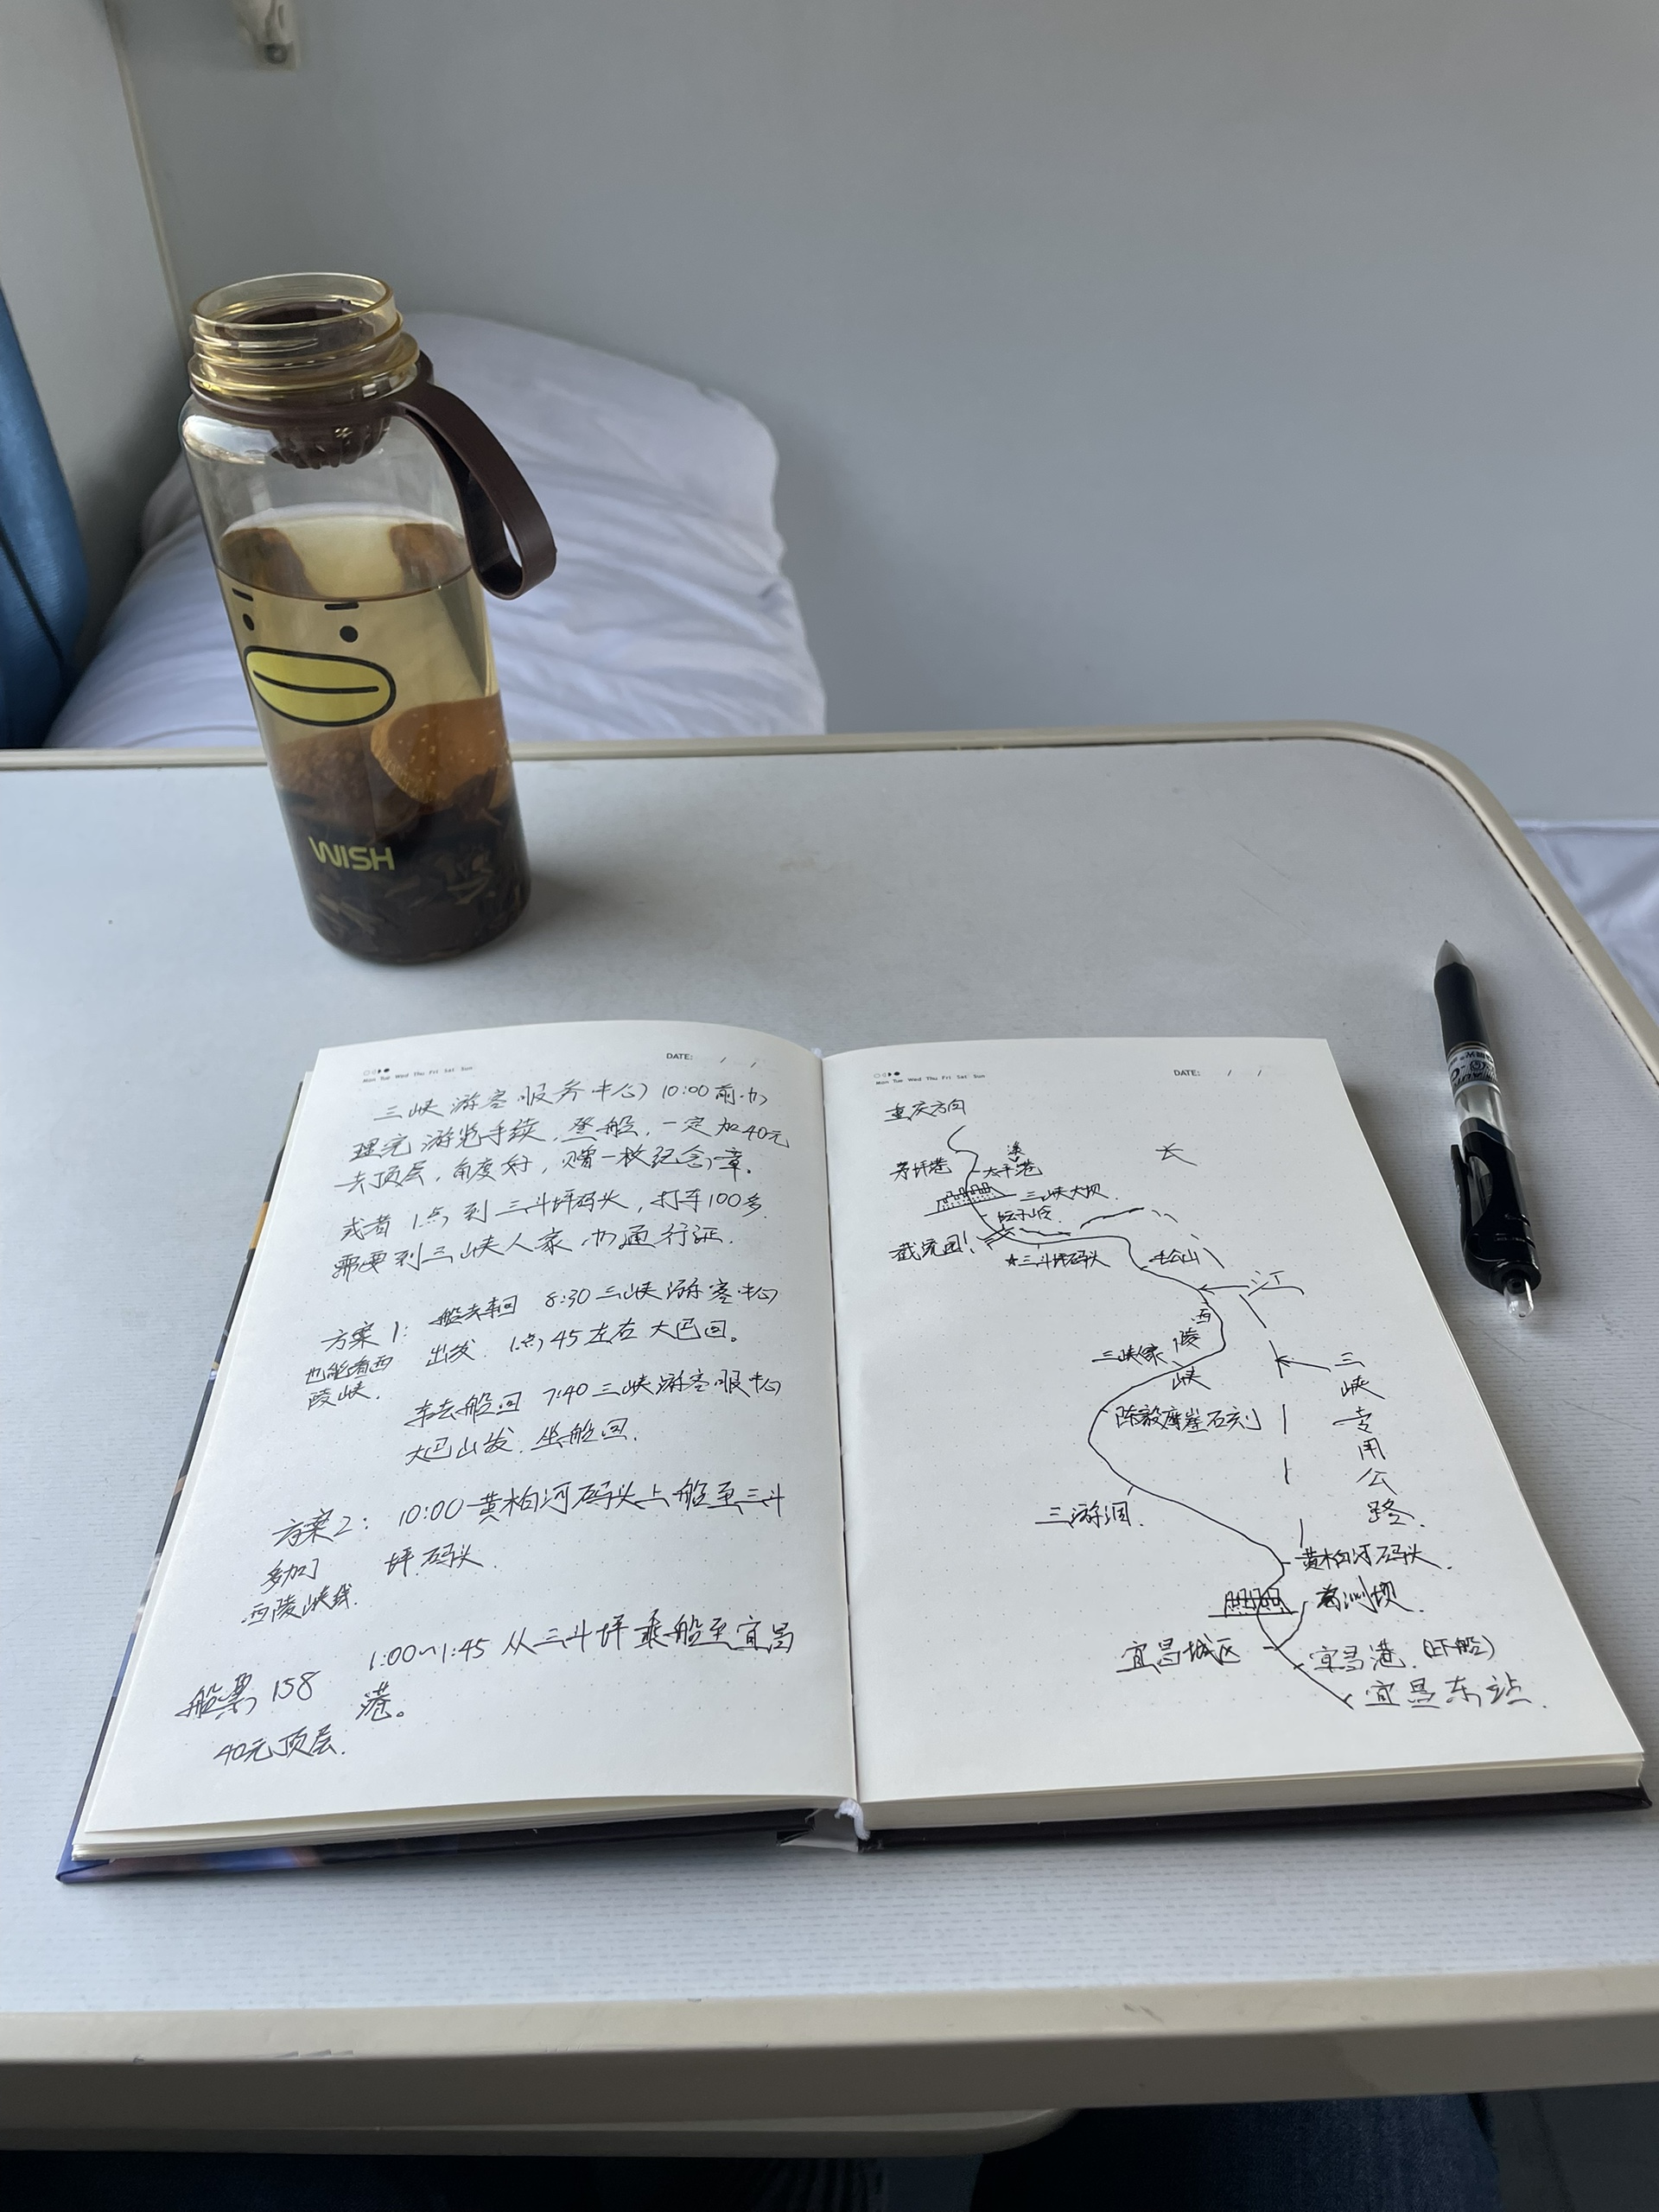 WISH
DATE: / /
Mon Tue Wed Thu Fri Sat Sun
三峡游客服务中心10:00前办
理完游览手续,登船,一定加40元
去顶层,角度好,赠一枚纪念章.
或者1点到三斗坪码头,打车100多.
需要到三峡人家办通行证.
方案1: 船去车回 8:30三峡游客中心
也能看西 出发. 1点45左右大巴回。
陵峡.
车去船回 7:40三峡游客服中心
大巴出发.坐船回.
方案2: 10:00黄柏河码头上船至三斗
多加 坪码头.
西陵峡线.
1:00~1:45从三斗坪乘船至宜昌
船票158 港。
40元顶层.
DATE: / /
Mon Tue Wed Thu Fri Sat Sun
重庆方向
长
茅坪港
太平溪港
三峡大坝.
坛子岭.
截流园!
★三斗坪码头
江
西
陵
峡
三峡人家
三
峡
专
用
公
路.
陈毅摩崖石刻
三游洞.
黄柏河码头.
葛洲坝.
宜昌城区
宜昌港.(下船)
宜昌东站.